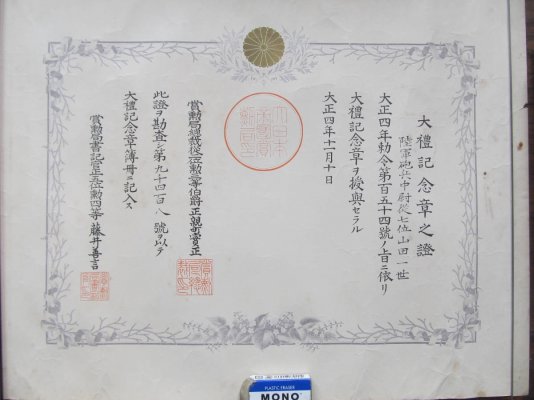 大禮記念章之證
陸軍砲兵中尉從七位山田一世
大正四年勅令第百五十四號ノ旨ニ依リ
大禮記念章ヲ授與セラル
大正四年十一月十日
賞勲局總裁從二位勲一等伯爵正親町實正
此證ヲ勘査シ第九十四百八號ヲ以テ
大禮記念章簿冊ニ記入ス
賞勲局書記官正五位勲四等藤井善言
PLASTIC ERASER
MONO